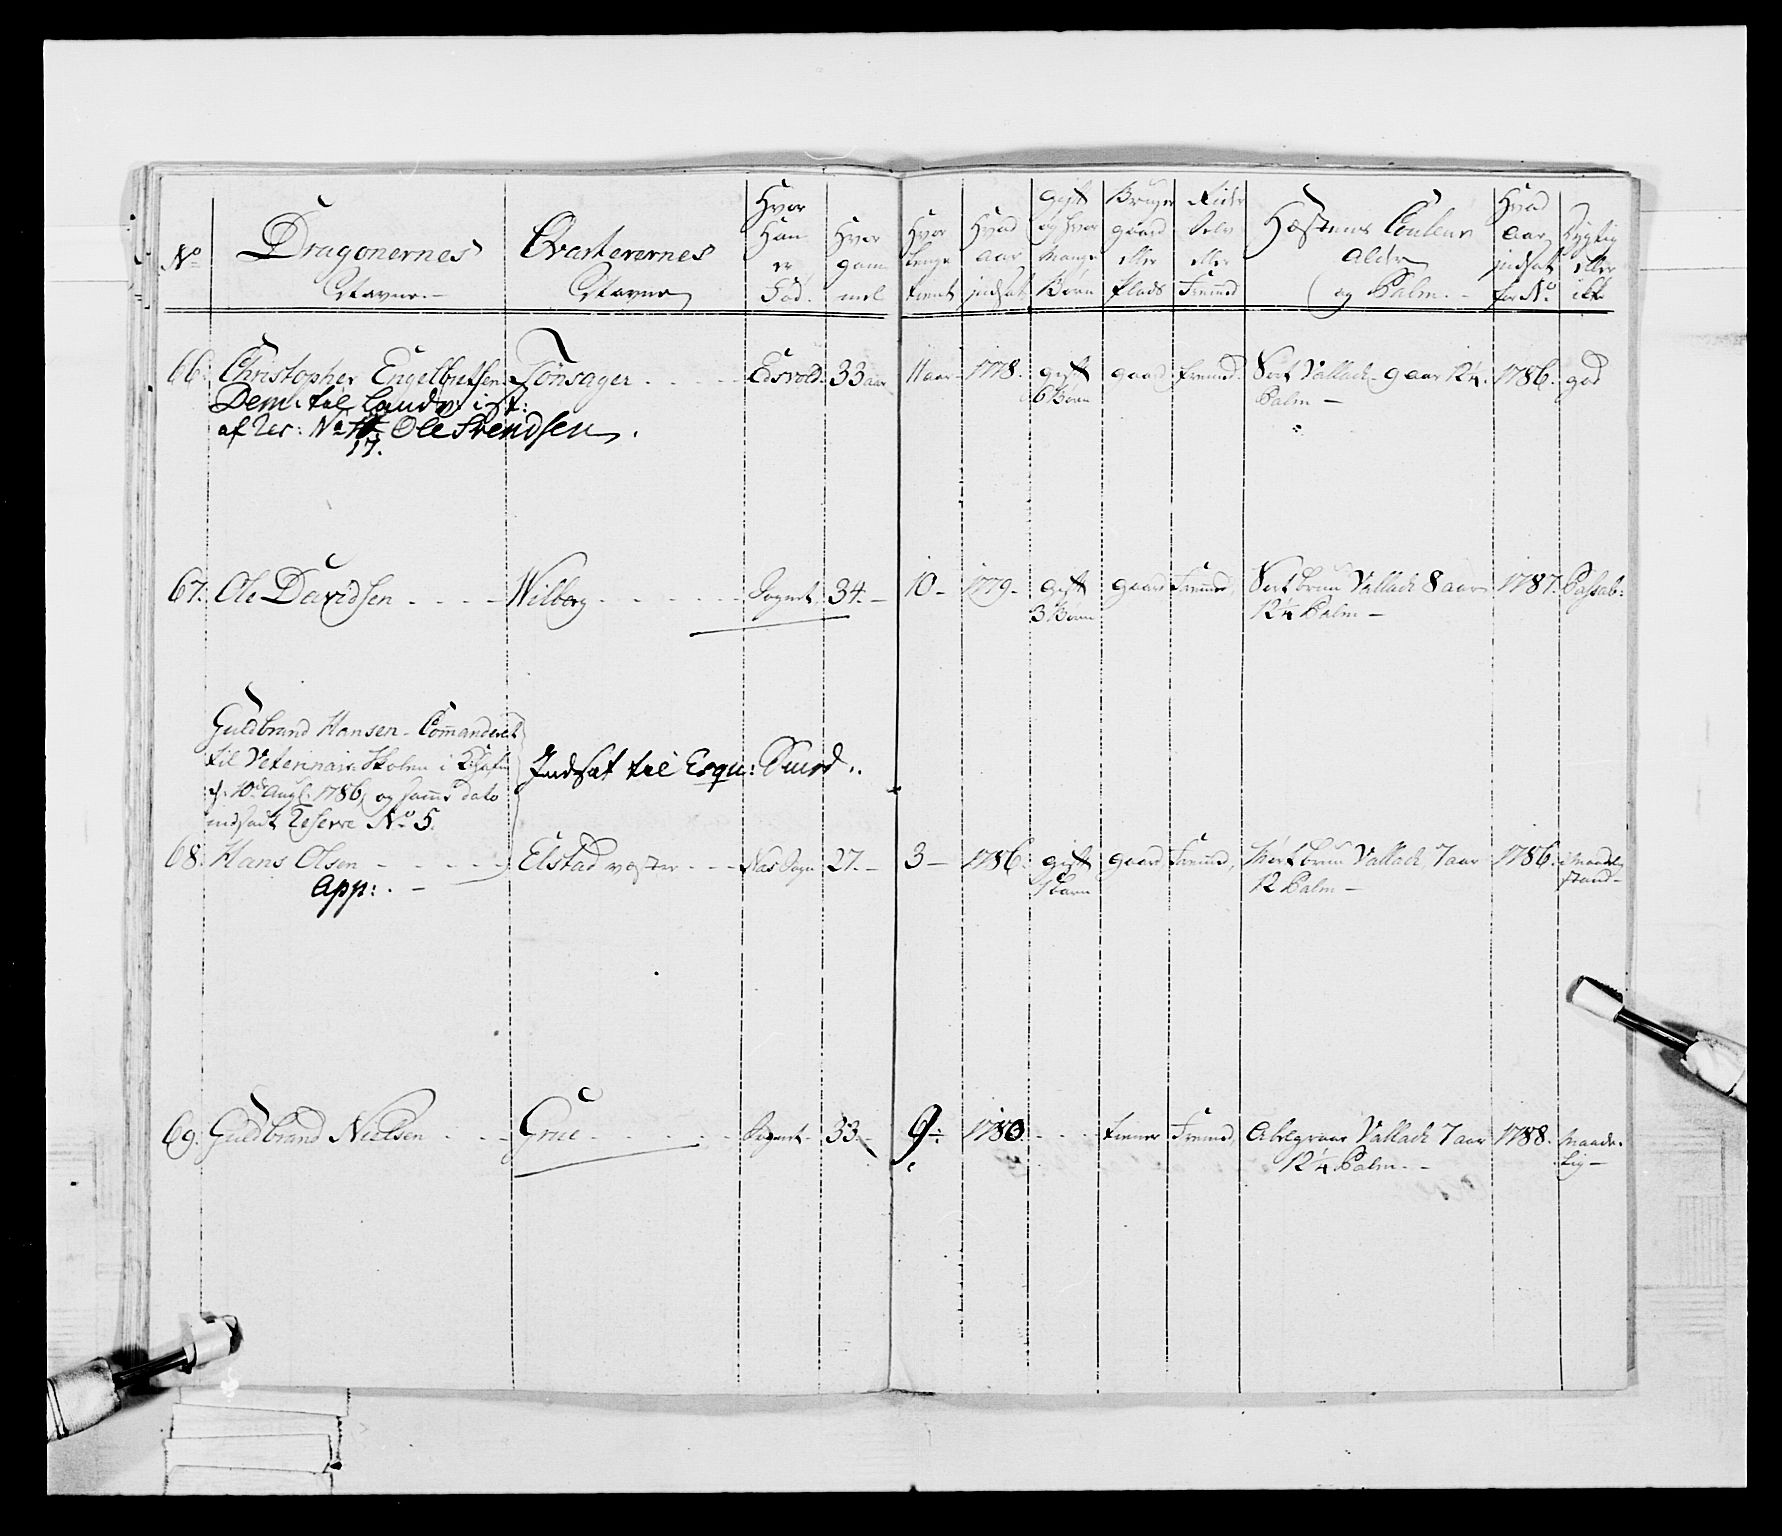 No
Dragonernes
Navne.
Qvarterernes
Navne
Hvor
Han
er
Fød.
Hvor
gam
mel
Hvor
lenge
tient
Hvad
aar
indsat
gift
og hvor
Mange
Børn
Bruger
gaard
eller
Plads
Rider
Selv
eller
Fremmed
Hæstenes Couleur
Alder
og Palm.
Hvad
aar
indsat
for No
Dygtig
eller
ikke
66. Christopher Engelbretsen Tønsager - - - Edsvold. 33 aar 11 aar. 1778. gift gaard fremmed. Sort Vallack 9 aar 12¼. 1786. god
6 Børn Palm -
Dem: til Landv:
af Res: No 17. Ole Svendsen.
67. Ole Davidsen - - - Wilberg - - - Sognet 34. - 10 - 1779. gift gaard Fremmed, Sort brun Vallack 8 aar 1787. Passab:
3 Børn 12¼ Palm -
Guldbrand Hansen - Commanderet
til Veterinair Skolen i
d. 10de Aug. 1786, og samme dato
indsadt Reserve No 5.
Indsat til Esqu: Smed.
68. Hans Olsen - - - Elstad vester - - Næs Sogn 27. - 3 - 1786. gift gaard Fremmed, Mørk brun Vallack, 7 aar 1786. i Maadelig
1 Barn 12 Palm - stand -
App: . -
69. Guldbrand Nielsen - - - Grue - - - Sognet - 33. - 9 - 1780. - - - tiener Fremmed, Abelgraae Vallack 7 aar 1788. Maade-
12¼ Palm. - lig -